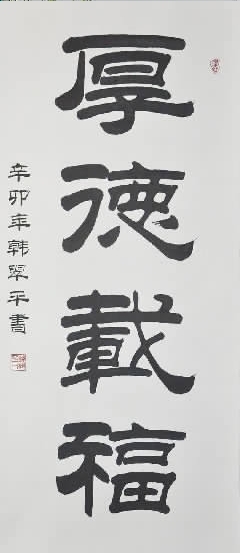 厚德載福
辛卯年韩翠平書